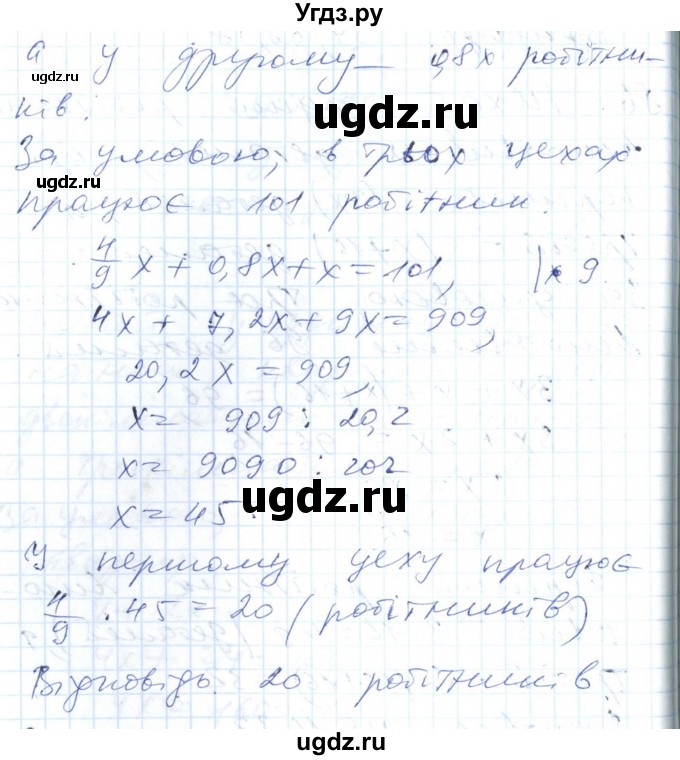 Угдз.ру
а у другому — 0,8x робітни-
ugdz.ru
ugdz.ru
ків.
За умовою, в трьох цехах
ugdz.ru
працює 101 робітник.
4/9 x + 0,8x + x = 101, | × 9.
4x + 7,2x + 9x = 909,
ugdz.ru
20,2x = 909,
x = 909 : 20,2
x = 9090 : 202
ugdz.ru
x = 45.
У першому цеху працює
4/9 · 45 = 20 (робітників)
ugdz.ru
Відповідь. 20 робітників
ugdz.ru